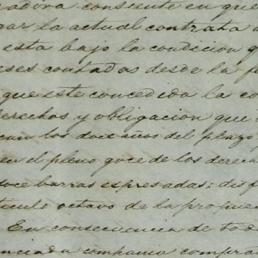 adora consiente en que
gar la actual contrata a
esta bajo la condicion q
eses contados desde la p
que este concedida la co
derechos y obligacion que
can los doce años del plazo
en el pleno goce de los derec
doce barras espresadas; disf
tículo octavo de la propues
En consecuencia de todo
compania compra